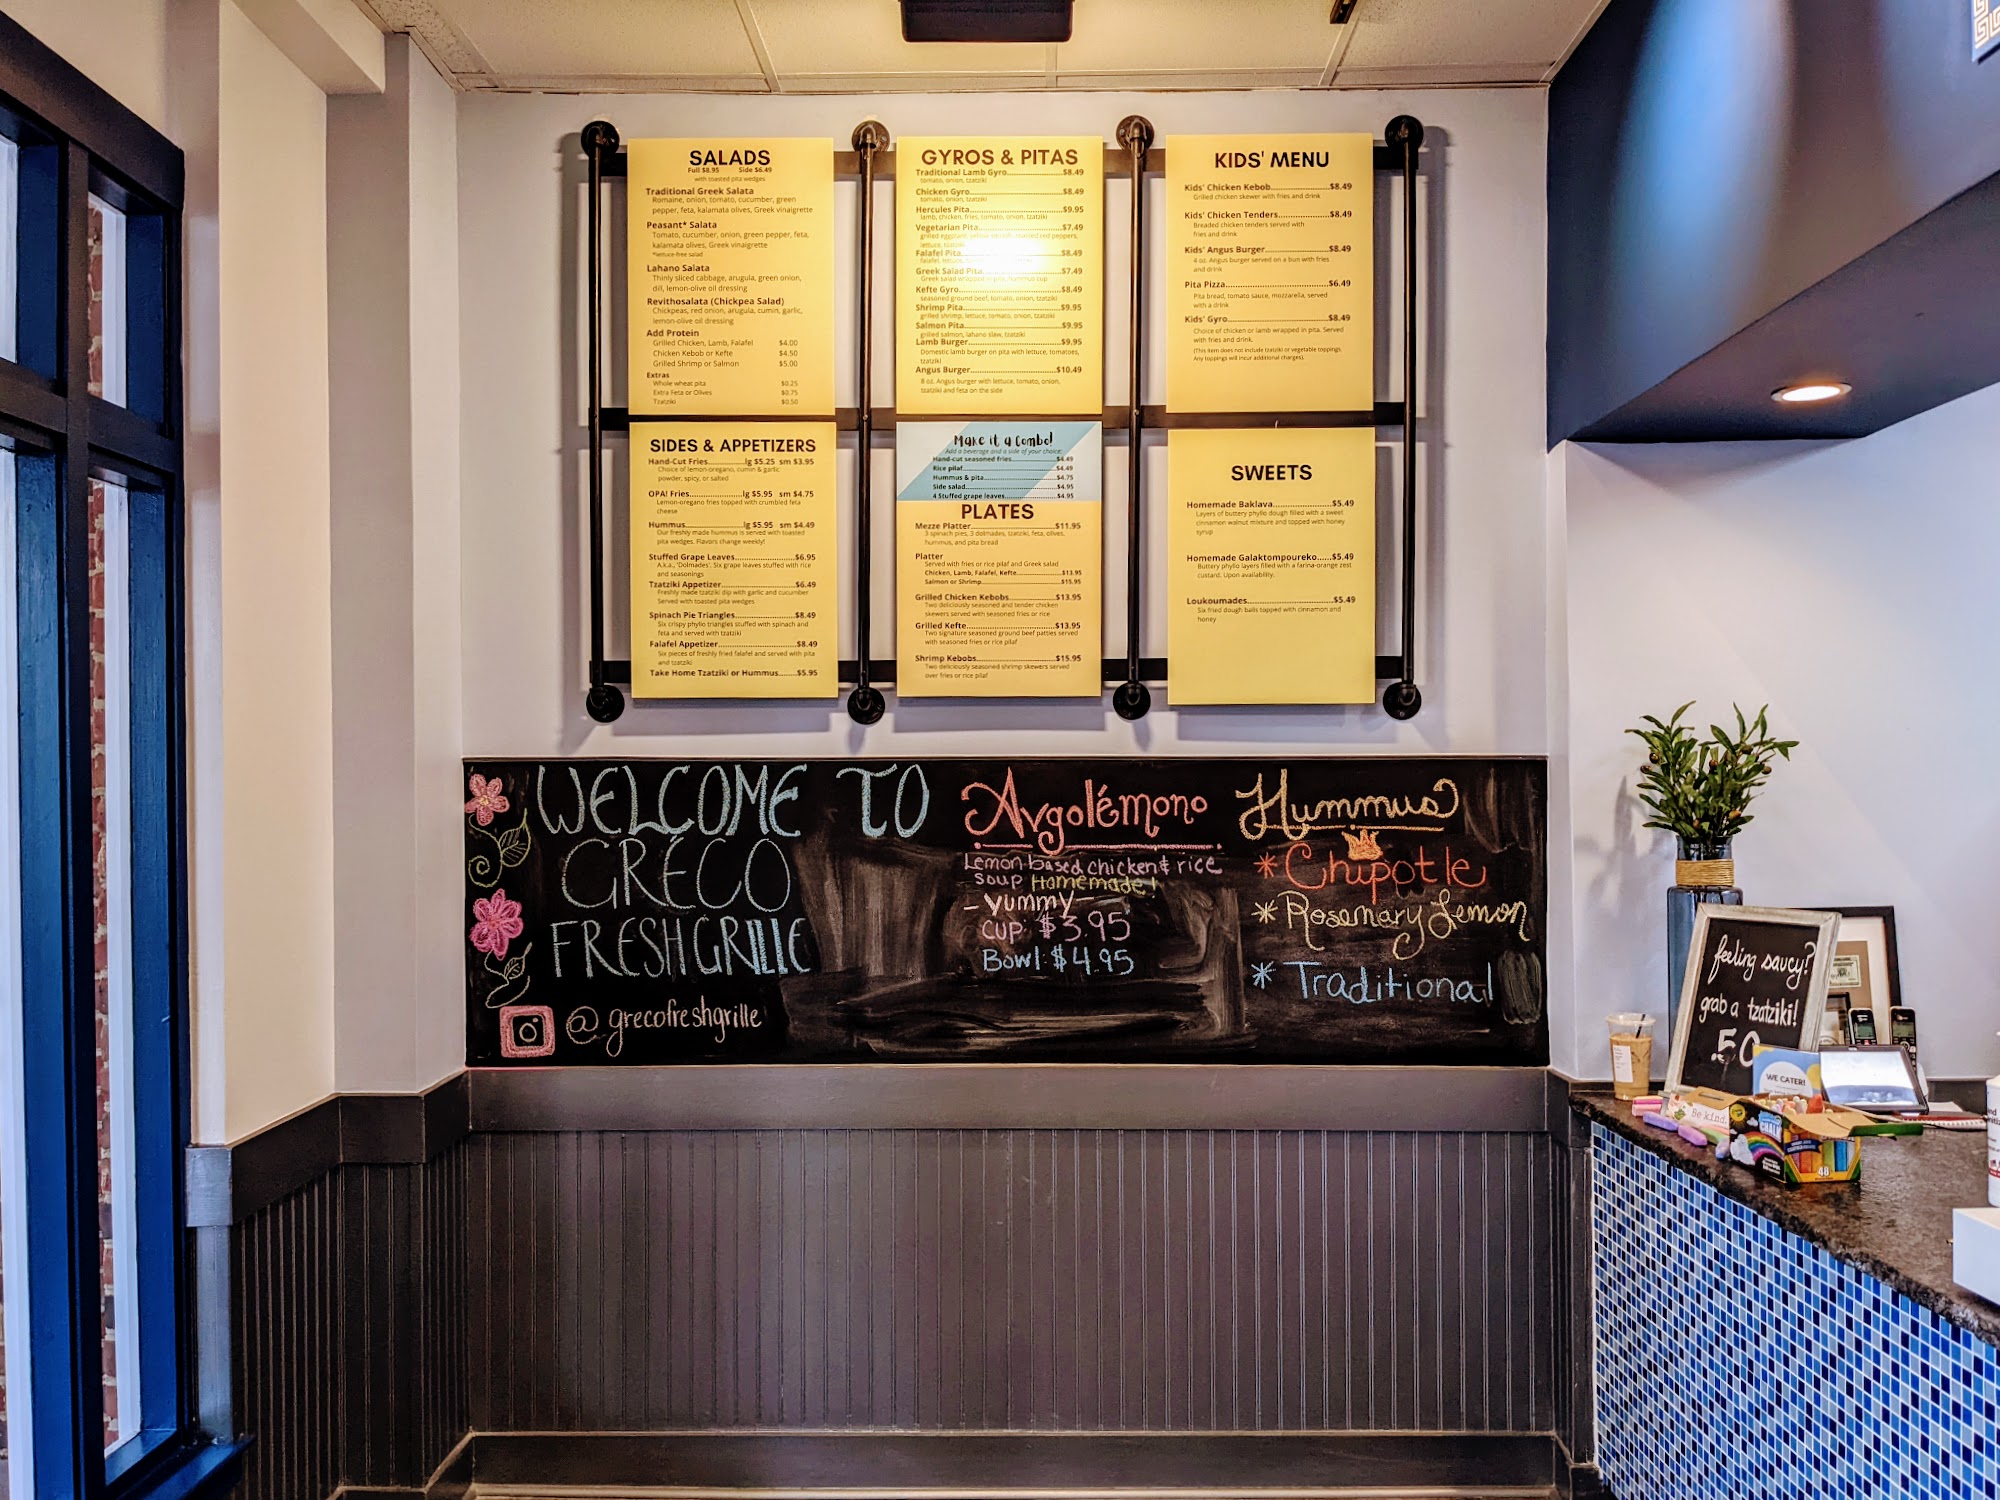 SALADS
Full $8.95 Side $6.49
with toasted pita wedges
Traditional Greek Salata
Romaine, onion, tomato, cucumber, green
pepper, feta, kalamata olives, Greek vinaigrette
Peasant* Salata
Tomato, cucumber, onion, green pepper, feta,
kalamata olives, Greek vinaigrette
*lettuce-free salad
Lahano Salata
Thinly sliced cabbage, arugula, green onion,
dill, lemon-olive oil dressing
Revithosalata (Chickpea Salad)
Chickpeas, red onion, arugula, cumin, garlic,
lemon-olive oil dressing
Add Protein
Grilled Chicken, Lamb, Falafel $4.00
Chicken Kebob or Kefte $4.50
Grilled Shrimp or Salmon $5.00
Extras
Whole wheat pita $0.25
Extra Feta or Olives $0.75
Tzatziki $0.50
GYROS & PITAS
Traditional Lamb Gyro $8.49
tomato, onion, tzatziki
Chicken Gyro $8.49
tomato, onion, tzatziki
Hercules Pita $9.95
lamb, chicken, fries, tomato, onion, tzatziki
Vegetarian Pita $7.49
grilled eggplant, red peppers,
lettuce, tzatziki
Falafel Pita $8.49
falafel, lettuce,
Greek Salad Pita $7.49
Greek salad wrapped in pita, hummus cup
Kefte Gyro $8.49
seasoned ground beef, tomato, onion, tzatziki
Shrimp Pita $9.95
grilled shrimp, lettuce, tomato, onion, tzatziki
Salmon Pita $9.95
grilled salmon, lahano slaw, tzatziki
Lamb Burger $9.95
Domestic lamb burger on pita with lettuce, tomatoes,
tzatziki
Angus Burger $10.49
8 oz. Angus burger with lettuce, tomato, onion,
tzatziki and feta on the side
KIDS' MENU
Kids' Chicken Kebob $8.49
Grilled chicken skewer with fries and drink
Kids' Chicken Tenders $8.49
Breaded chicken tenders served with
fries and drink
Kids' Angus Burger $8.49
4 oz. Angus burger served on a bun with fries
and drink
Pita Pizza $6.49
Pita bread, tomato sauce, mozzarella, served
with a drink
Kids' Gyro $8.49
Choice of chicken or lamb wrapped in pita. Served
with fries and drink.
(This item does not include tzatziki or vegetable toppings.
Any toppings will incur additional charges).
SIDES & APPETIZERS
Hand-Cut Fries lg $5.25 sm $3.95
Choice of lemon-oregano, cumin & garlic
powder, spicy, or salted
OPA! Fries lg $5.95 sm $4.75
Lemon-oregano fries topped with crumbled feta
cheese
Hummus lg $5.95 sm $4.49
Our freshly made hummus is served with toasted
pita wedges. Flavors change weekly!
Stuffed Grape Leaves $6.95
A.k.a., 'Dolmades'. Six grape leaves stuffed with rice
and seasonings
Tzatziki Appetizer $6.49
Freshly made tzatziki dip with garlic and cucumber
Served with toasted pita wedges
Spinach Pie Triangles $8.49
Six crispy phyllo triangles stuffed with spinach and
feta and served with tzatziki
Falafel Appetizer $8.49
Six pieces of freshly fried falafel and served with pita
and tzatziki
Take Home Tzatziki or Hummus $5.95
Make it a Combo!
Add a beverage and a side of your choice:
Hand-cut seasoned fries $4.49
Rice pilaf $4.49
Hummus & pita $4.75
Side salad $4.95
4 Stuffed grape leaves $4.95
PLATES
Mezze Platter $11.95
3 spinach pies, 3 dolmades, tzatziki, feta, olives,
hummus, and pita bread
Platter
Served with fries or rice pilaf and Greek salad
Chicken, Lamb, Falafel, Kefte $13.95
Salmon or Shrimp $15.95
Grilled Chicken Kebobs $13.95
Two deliciously seasoned and tender chicken
skewers served with seasoned fries or rice
Grilled Kefte $13.95
Two signature seasoned ground beef patties served
with seasoned fries or rice pilaf
Shrimp Kebobs $15.95
Two deliciously seasoned shrimp skewers served
over fries or rice pilaf
SWEETS
Homemade Baklava $5.49
Layers of buttery phyllo dough filled with a sweet
cinnamon walnut mixture and topped with honey
syrup
Homemade Galaktompoureko $5.49
Buttery phyllo layers filled with a farina-orange zest
custard. Upon availability.
Loukoumades $5.49
Six fried dough balls topped with cinnamon and
honey
WELCOME TO
GRÉCO
FRESH GRILLE
@grecofreshgrille
Avgolémono
Lemon based chicken & rice
soup Homemade!
- Yummy -
Cup: $3.95
Bowl: $4.95
Hummus
* Chipotle
* Rosemary Lemon
* Traditional
feeling saucy?
grab a tzatziki!
.50
WE CATER!
Be kind.
CHALK
48